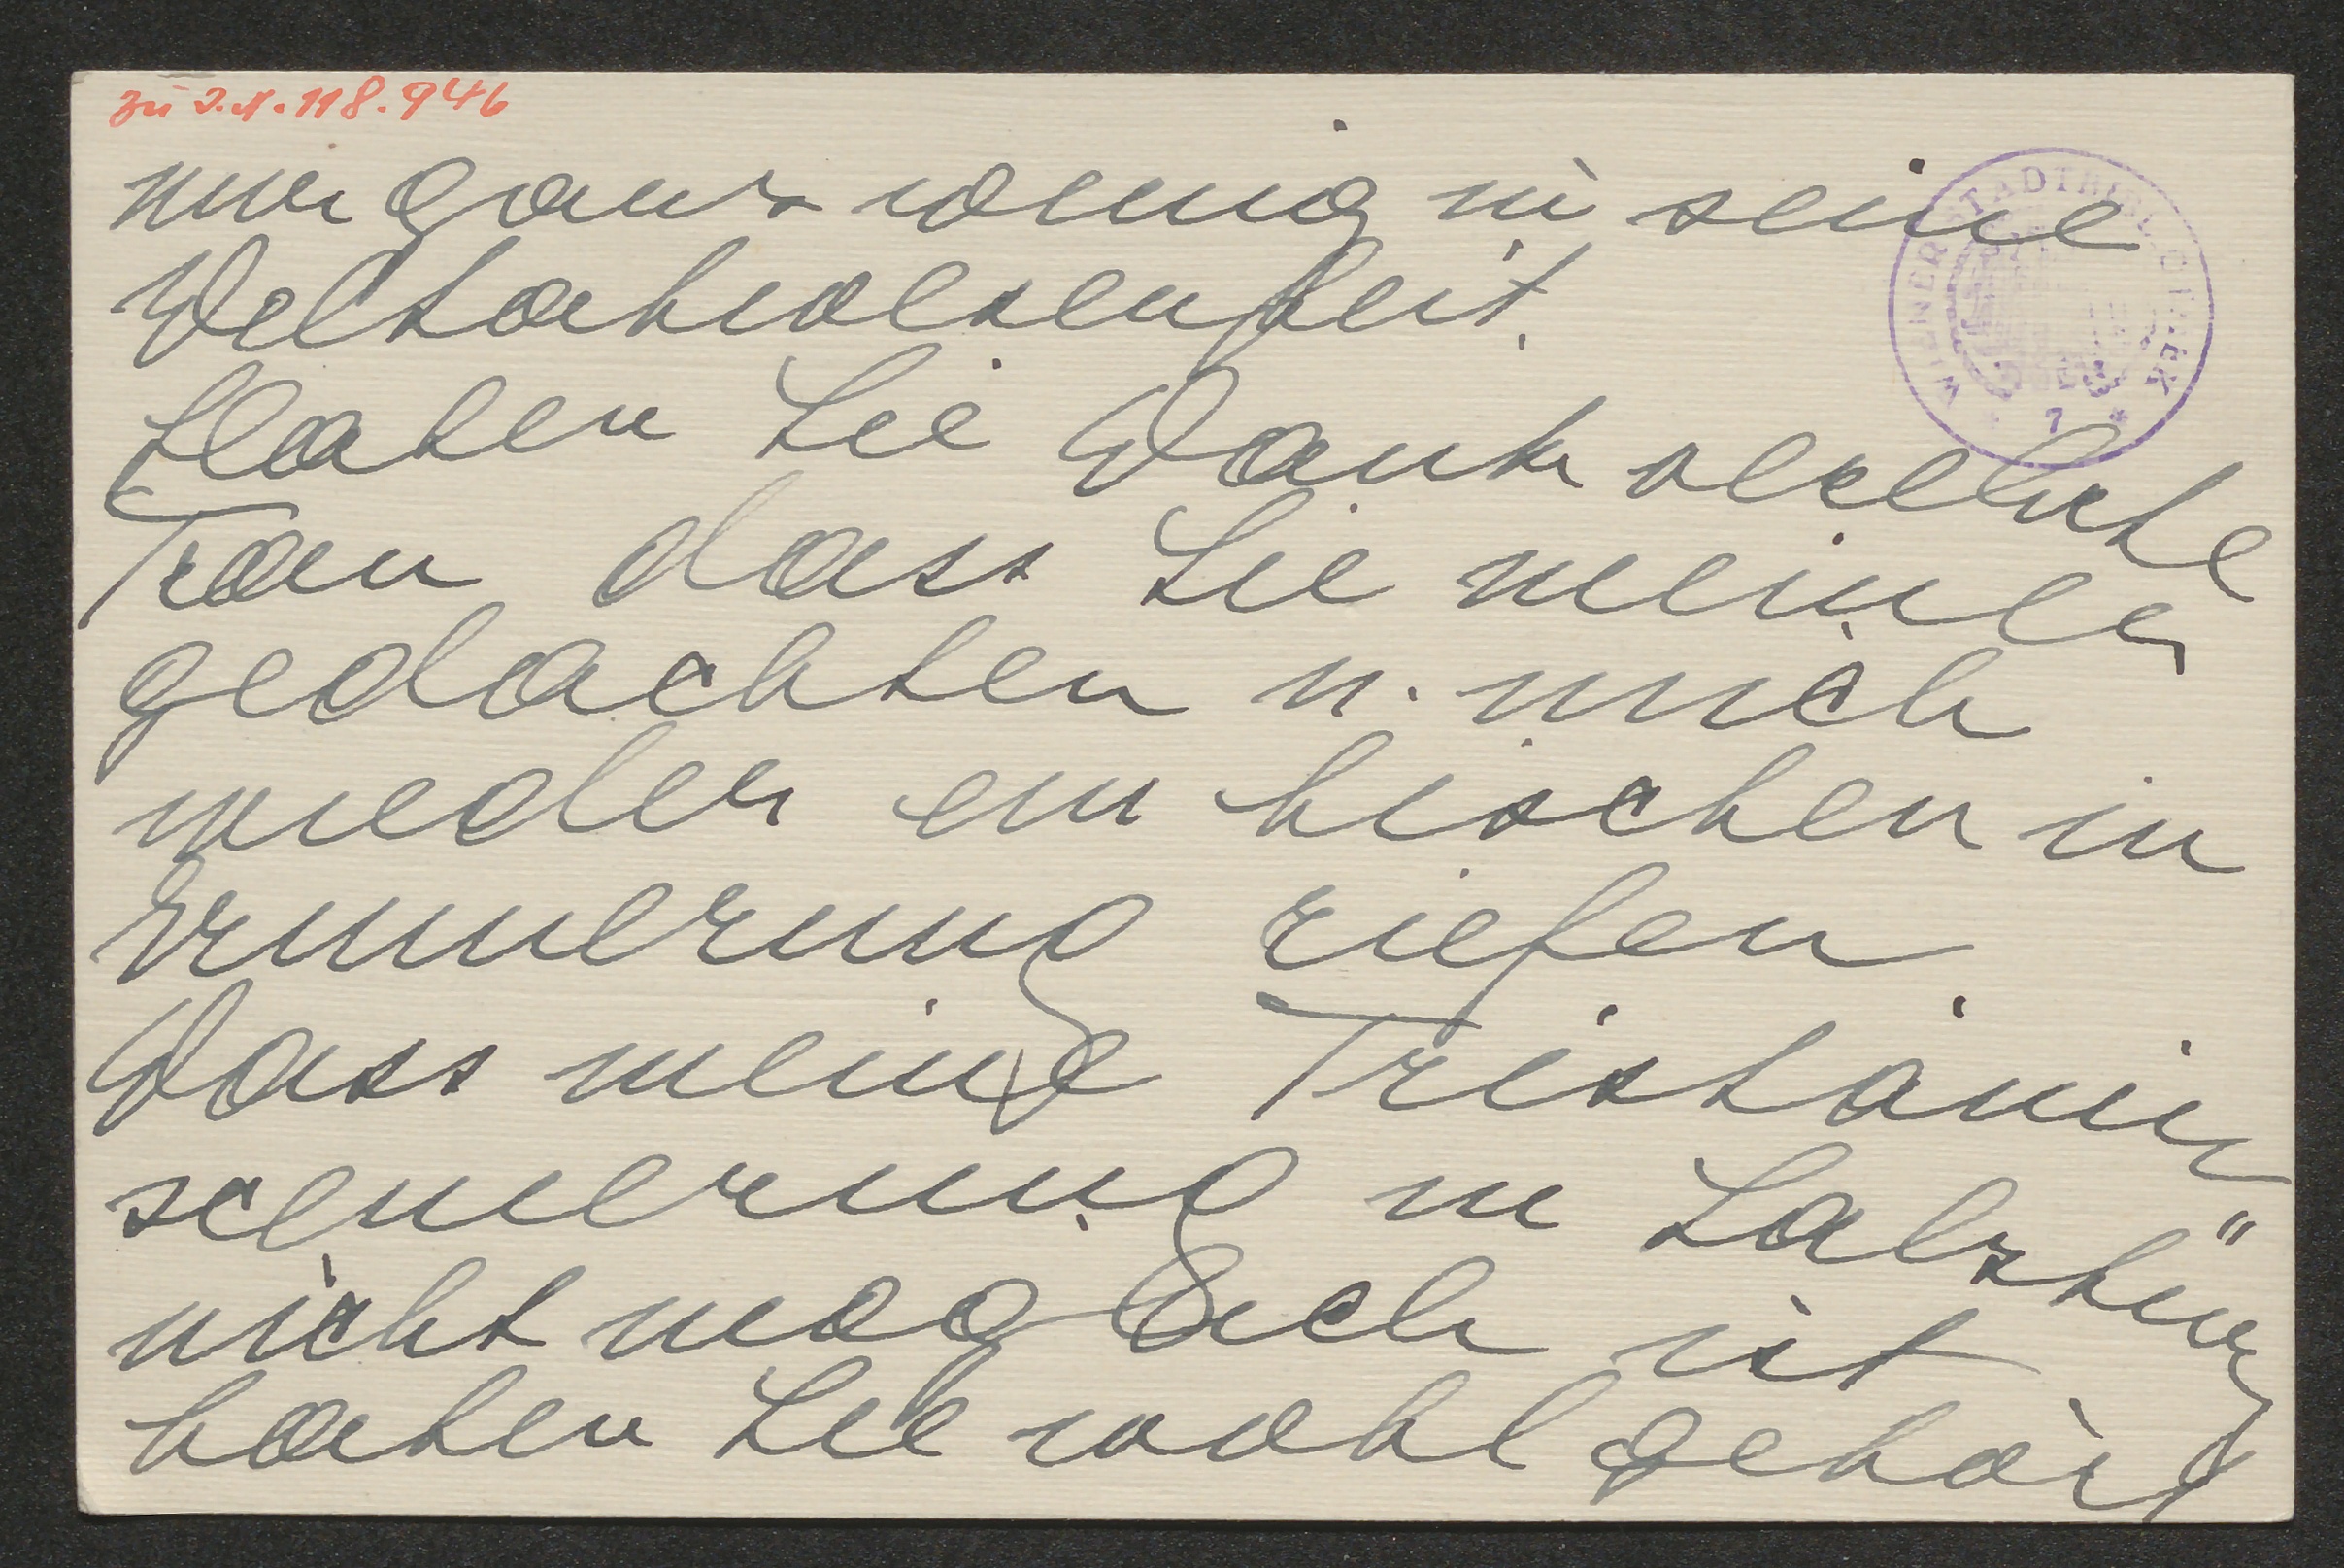 zu I.N. 118.946
nur ganz wenig in seine
Weltabwesenheit.
WIENER STADTBIBLIOTHEK
7
Haben Sie Dank verehrte
Frau dass Sie meiner
gedachten u. mich
wieder ein bischen in
Erinnerung riefen.
Dass meine Tristanin
scenierung in Salzburg
nicht möglich ist
haben Sie wohl gehört